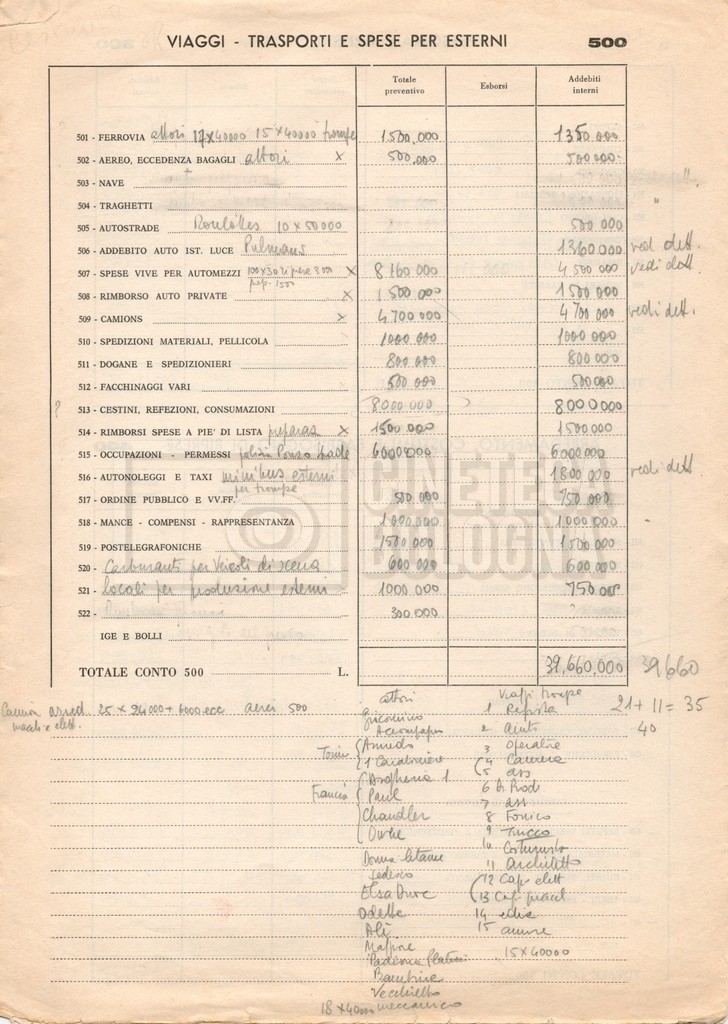 VIAGGI - TRASPORTI E SPESE PER ESTERNI 500
Totale preventivo Esborsi Addebiti interni
501 - FERROVIA attori 17x40000 15x40000 troupe 1.500.000 1350.000
502 - AEREO, ECCEDENZA BAGAGLI attori x 500.000 500.000
503 - NAVE
504 - TRAGHETTI
505 - AUTOSTRADE Roulottes 10 x 50000 500 000
506 - ADDEBITO AUTO IST. LUCE Pulmans 1.360 000 vedi dett.
507 - SPESE VIVE PER AUTOMEZZI x 8 160 000 4 500 000 vedi dett.
508 - RIMBORSO AUTO PRIVATE x 1 500 000 1 500 000
509 - CAMIONS x 4.700 000 4 700 000 vedi dett.
510 - SPEDIZIONI MATERIALI, PELLICOLA 1000 000 1000 000
511 - DOGANE E SPEDIZIONIERI 800 000 800 000
512 - FACCHINAGGI VARI 500 000 500 000
? 513 - CESTINI, REFEZIONI, CONSUMAZIONI 8000 000 8000000
514 - RIMBORSI SPESE A PIE' DI LISTA preparaz x 1500 000 1500 000
515 - OCCUPAZIONI - PERMESSI polizia 6000000 6000 000
516 - AUTONOLEGGI E TAXI minibus esterni per troupe 1800 000 vedi dett.
517 - ORDINE PUBBLICO E VV.FF. 500 000 750 000
518 - MANCE - COMPENSI - RAPPRESENTANZA 1 000 000 1.000 000
519 - POSTELEGRAFONICHE 1500 000 1 500 000
520 - Carburanti per veicoli di scena 600 000 600 000
521 - Locali per produzione esterni 1000 000 750 000
522 - 300 000
IGE E BOLLI
TOTALE CONTO 500 L. 39,660,000 39660
CINETECA BOLOGNA
Camion arred. 25 x 24000 + 6000 ecc aerei 500
macch e elett.
attori
Giacomino
Accompagn
Amedeo
1 Carabiniere
1
Francia Paul
Chandler
Tedesco
Elsa
Odette
Alì
Bambine
Vecchietto
meccanico
18 x 40000
Viaggi troupe
1 Regista
2 aiuto
3 operatore
4 Camera
5 ass
6 D. Prod
7 ass
8 Fonico
9 Trucco
10 Costumista
11 Architetto
12 Capo elett
13 Capo macch
14
15
15x40000
21 + 11 = 35
40